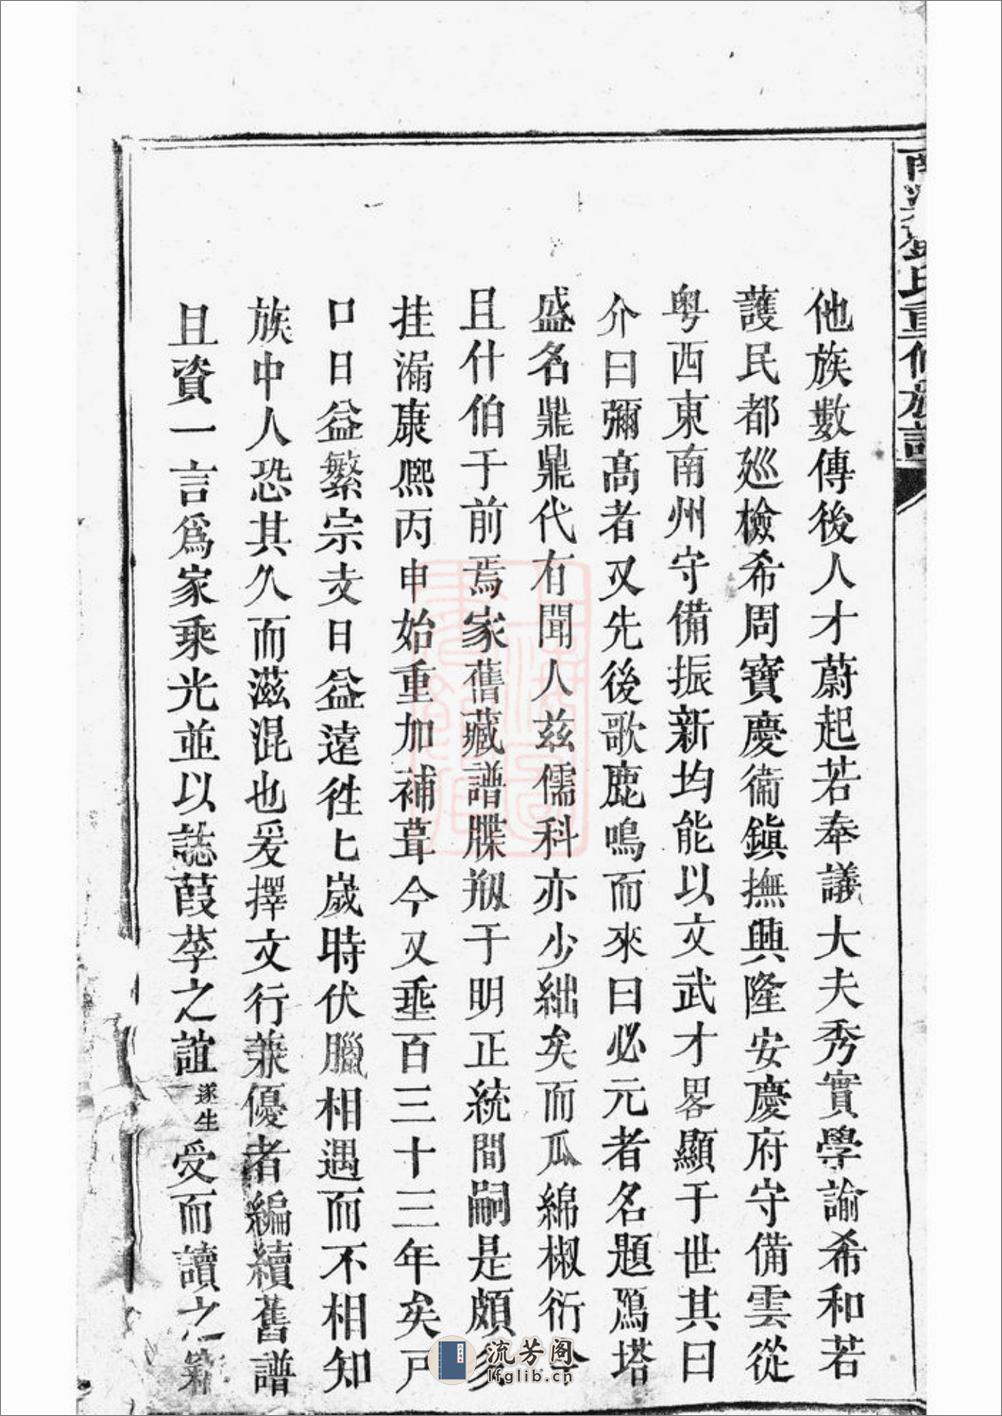 氏重修族譜
他族數傳後人才蔚起若奉議大夫秀實學諭希和若
護民都廵檢希周寶慶衞鎭撫興隆安慶府守備雲從
粤西東南州守備振新均能以文武才畧顯于世其曰
介曰彌高者又先後歌鹿鳴而來曰必元者名題鴈塔
盛名鼎鼎代有聞人茲儒科亦少絀矣而瓜綿椒衍今
且什伯于前焉家舊藏譜牒剏于明正統間嗣是頗多
挂漏康熈丙申始重加補葺今又垂百三十三年矣戸
口日益繁宗支日益遠徃七歲時伏臘相遇而不相知
族中人恐其久而滋混也爰擇文行兼優者編續舊譜
且資一言爲家乘光並以誌葭莩之誼遂生受而讀之
流芳阁
lfglib.cn